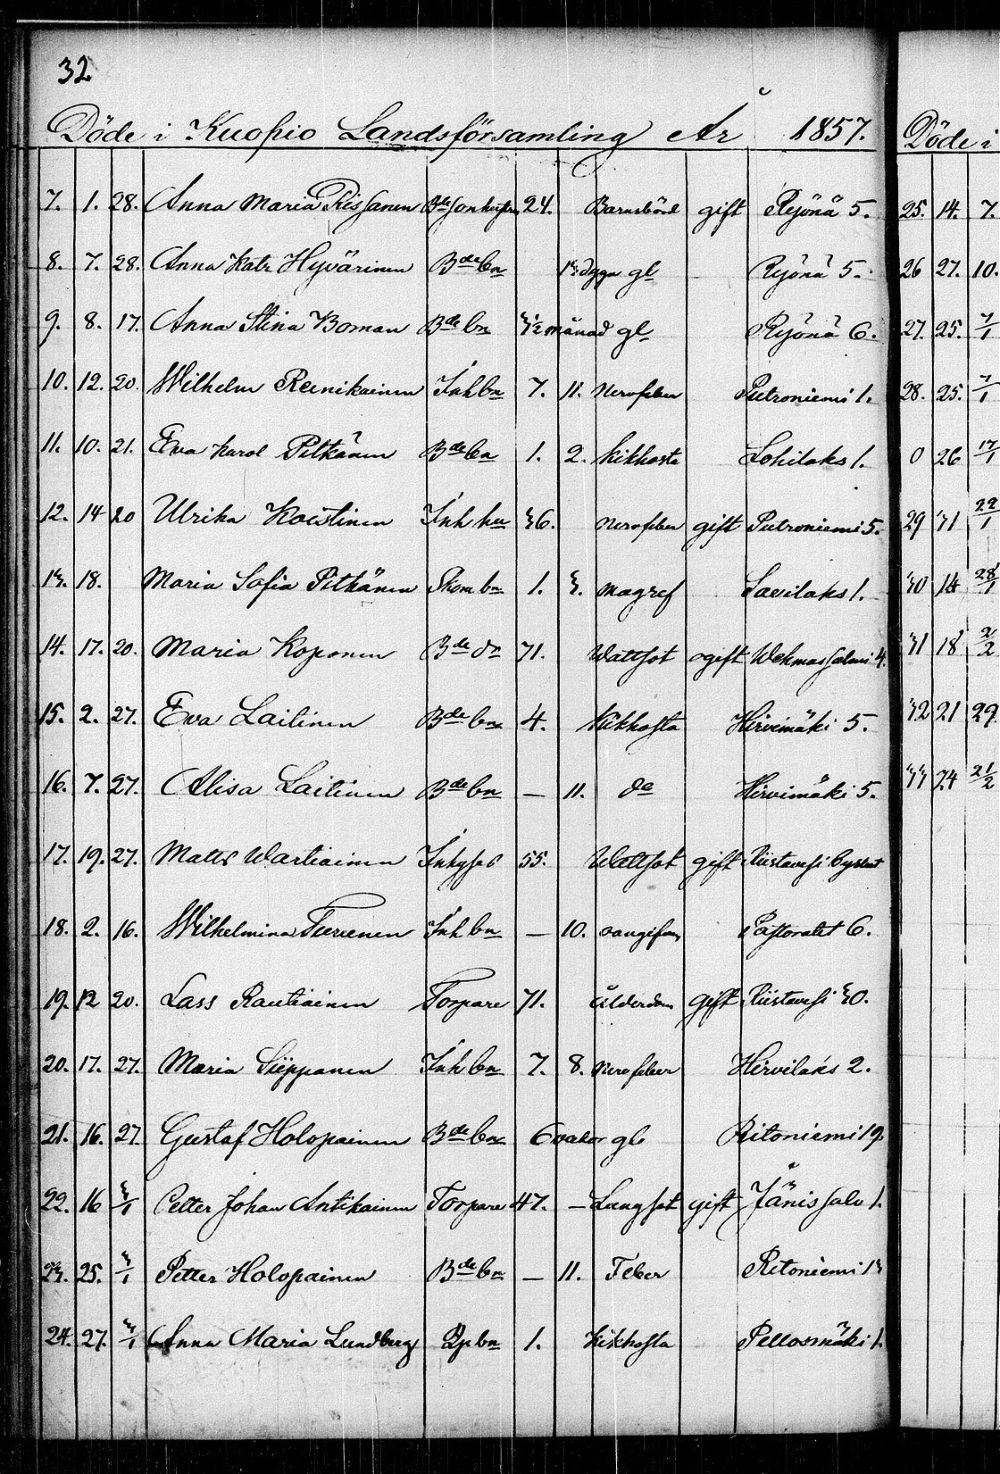 32
Döde i Kuopio Landsförsamling År 1857.
7. 1. 28. Anna Maria Rissanen 24. Barnsbörd gift Ryönä 5.
8. 7. 28. Anna Katr Hyvärinen Bde bn 13 dgr gl Ryönä 5.
9. 8. 17. Anna Stina Boman Bde bn 3 1/2 månad gl Ryönä 6.
10. 12. 20. Wilhelm Reinikainen Inh bn 7. 11. Nervfeber Putroniemi 1.
11. 10. 21. Eva Karol Pitkänen Bde bn 1. 2. kikhosta Lohilaks 1.
12. 14 20 Ulrika Koistinen Inh hu 36. Nervfeber gift Putroniemi 5.
13. 18. Maria Sofia Pitkänen bn 1. 3. magref Savilaks 1.
14. 17. 20. Maria Koponen Bde do 71. Wattsot ogift Wehmassalmi 4.
15. 2. 27. Eva Laitinen Bde bn 4. Kikhosta Hirvimäki 5.
16. 7. 27. Alisa Laitinen Bde bn — 11. do Hirvimäki 5.
17. 19. 27. Matts Wartiainen 55. Wattsot gift
18. 2. 16. Wilhelmina Turunen Inh bn — 10. oangifven Pastoratet 6.
19. 12 20. Lass Rautiainen Torpare 71. ålderdom gift 30.
20. 17. 27. Maria Sieppanen Inh bn 7. 8. Nervfeber Hirvilaks 2.
21. 16. 27 Gustaf Holopainen Bde bn 6 gl Ritoniemi 19
22. 16 3/1 Petter Johan Antikainen Torpare 47. — Lungsot gift Jänissalo 1.
23. 25. 3/1 Petter Holopainen Bde bn — 11. Feber Ritoniemi 13
24. 27. 3/1 Anna Maria Lundberg bn 1. Kikhosta Pellosmäki 1.
Döde i
25. 14. 7.
26 27. 10.
27. 25. 7/1
28. 25. 7/1
0 26 17/1
29 31 22/1
30 14 28/1
31 18 2/2
32 21 29
33 24 21/2